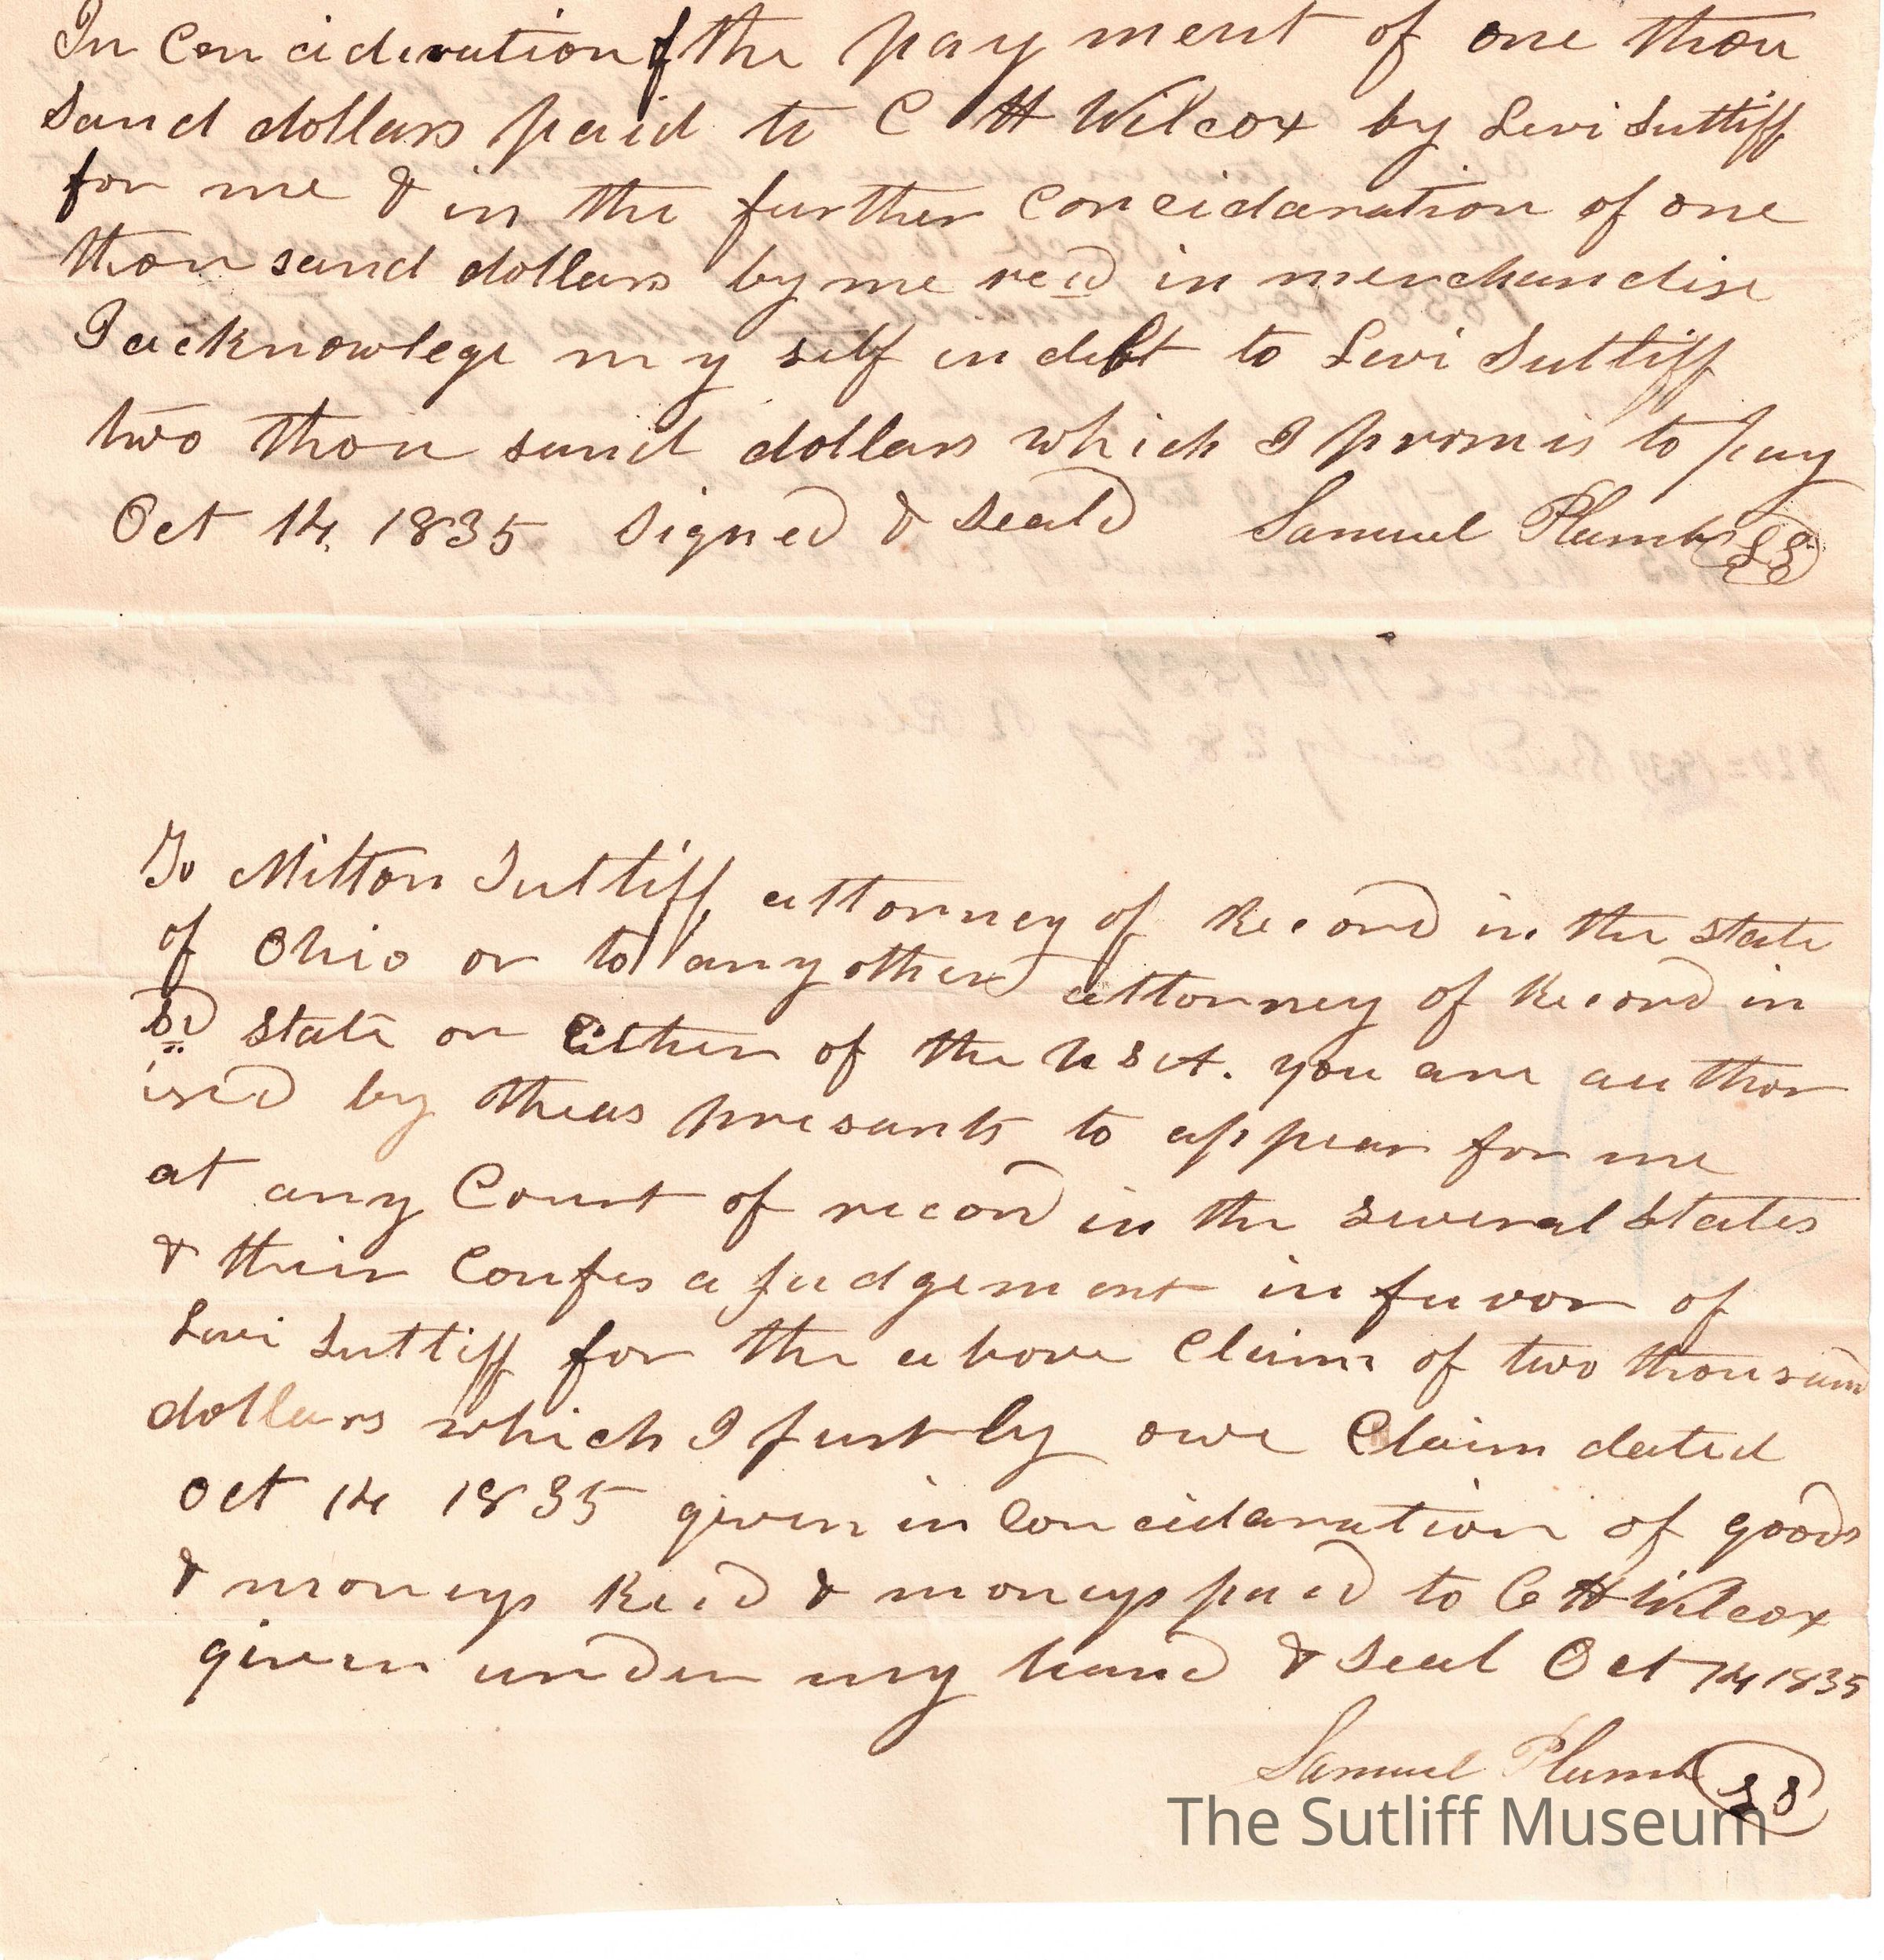 In Concideration of the payment of one thou
sand dollars paid to C H Wilcox by Levi Sutliff
for me & in the further Concideration of one
thousand dollars by me recd in merchandise
I acknowlege my self in debt to Levi Sutliff
two thousand dollars which I promis to pay
Oct 14, 1835 Signed & Seald Samuel Plumb LS
To Milton Sutliff attorney of Record in the state
of Ohio or to any other attorney of Record in
sd state or Either of the USA. you are author
ised by theas presants to appear for me
at any Court of record in the several States
& their Confes a judgement in favor of
Levi Sutliff for the above Claim of two thousand
dollars which I justly owe Claim dated
Oct 14 1835 given in Concidaration of goods
& moneys Recd & moneys paid to C H Wilcox
given under my hand & seal Oct 14 1835
Samuel Plumb LS
The Sutliff Museum